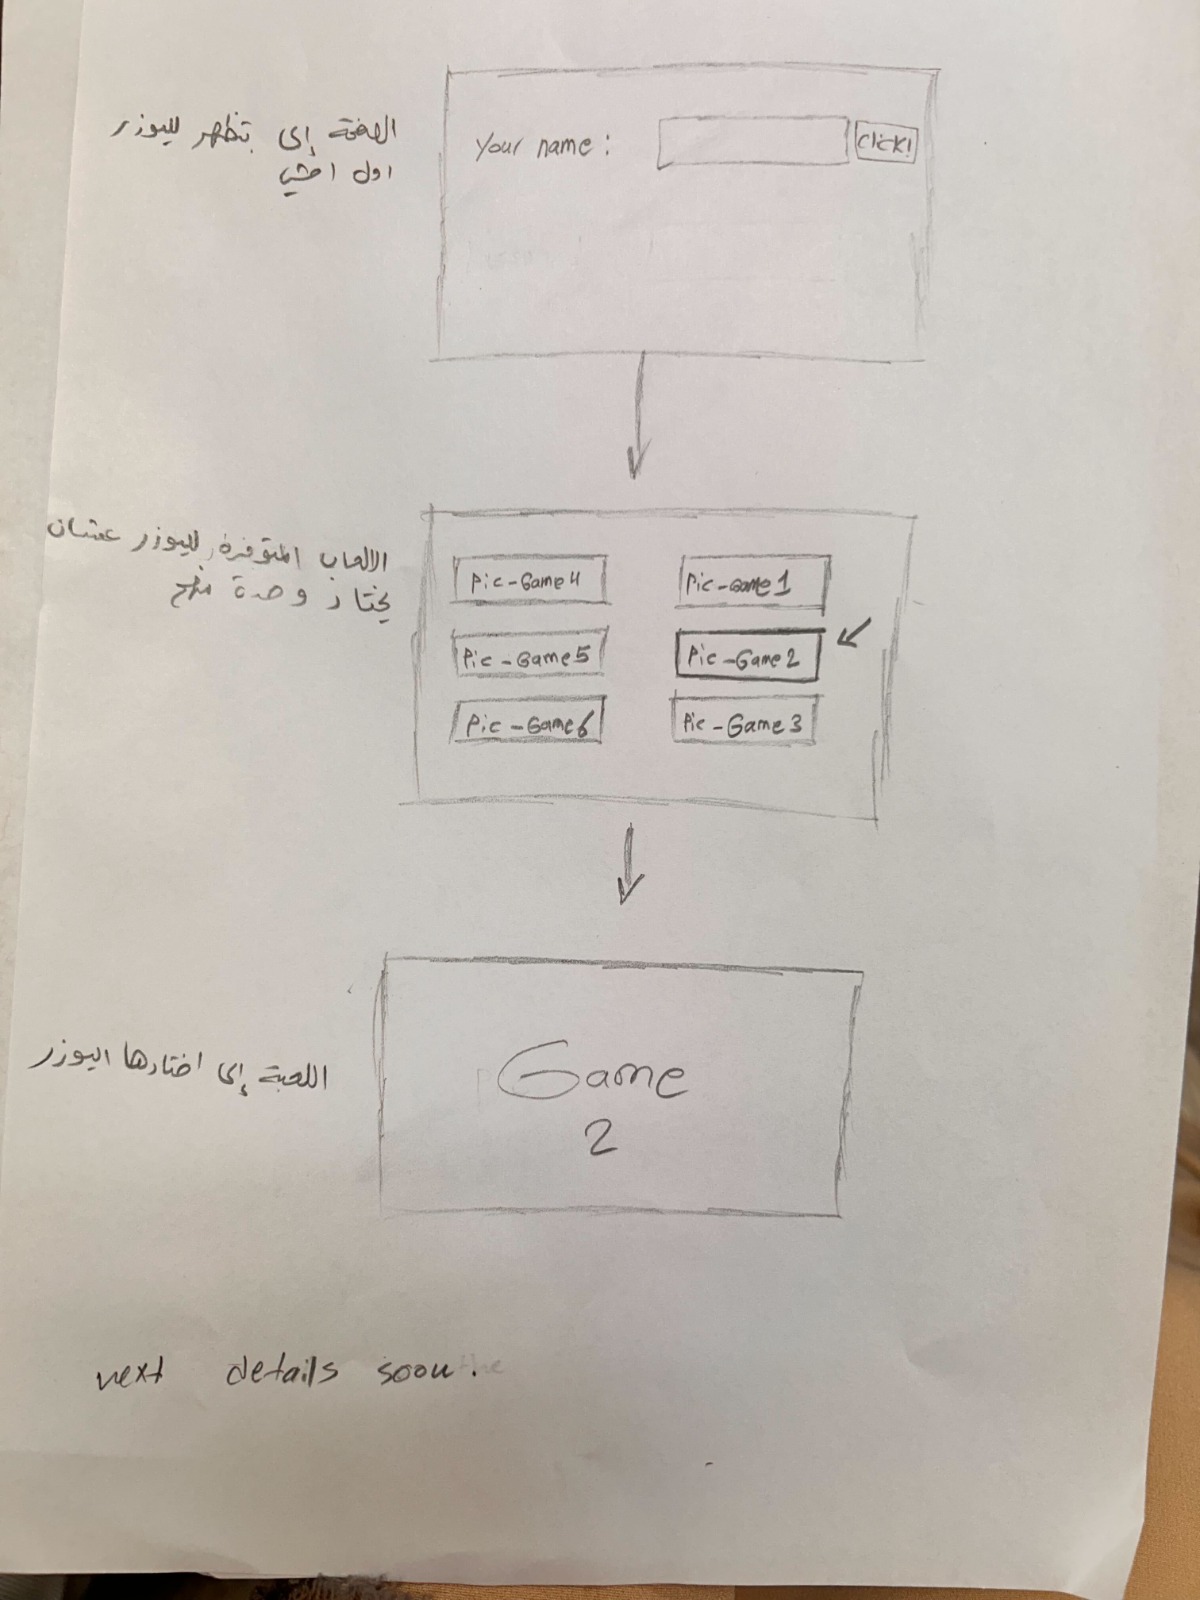 الصفحة إلى بتظهر لليوزر
اول اشي
Your name :
Click!
الالعاب المتوفرة لليوزر عشان
يختار وحدة منهم
Pic-Game4
Pic-Game1
Pic-Game5
Pic-Game2
Pic-Game6
Pic-Game3
اللعبة إلى اختارها اليوزر
Game
2
next details soon.